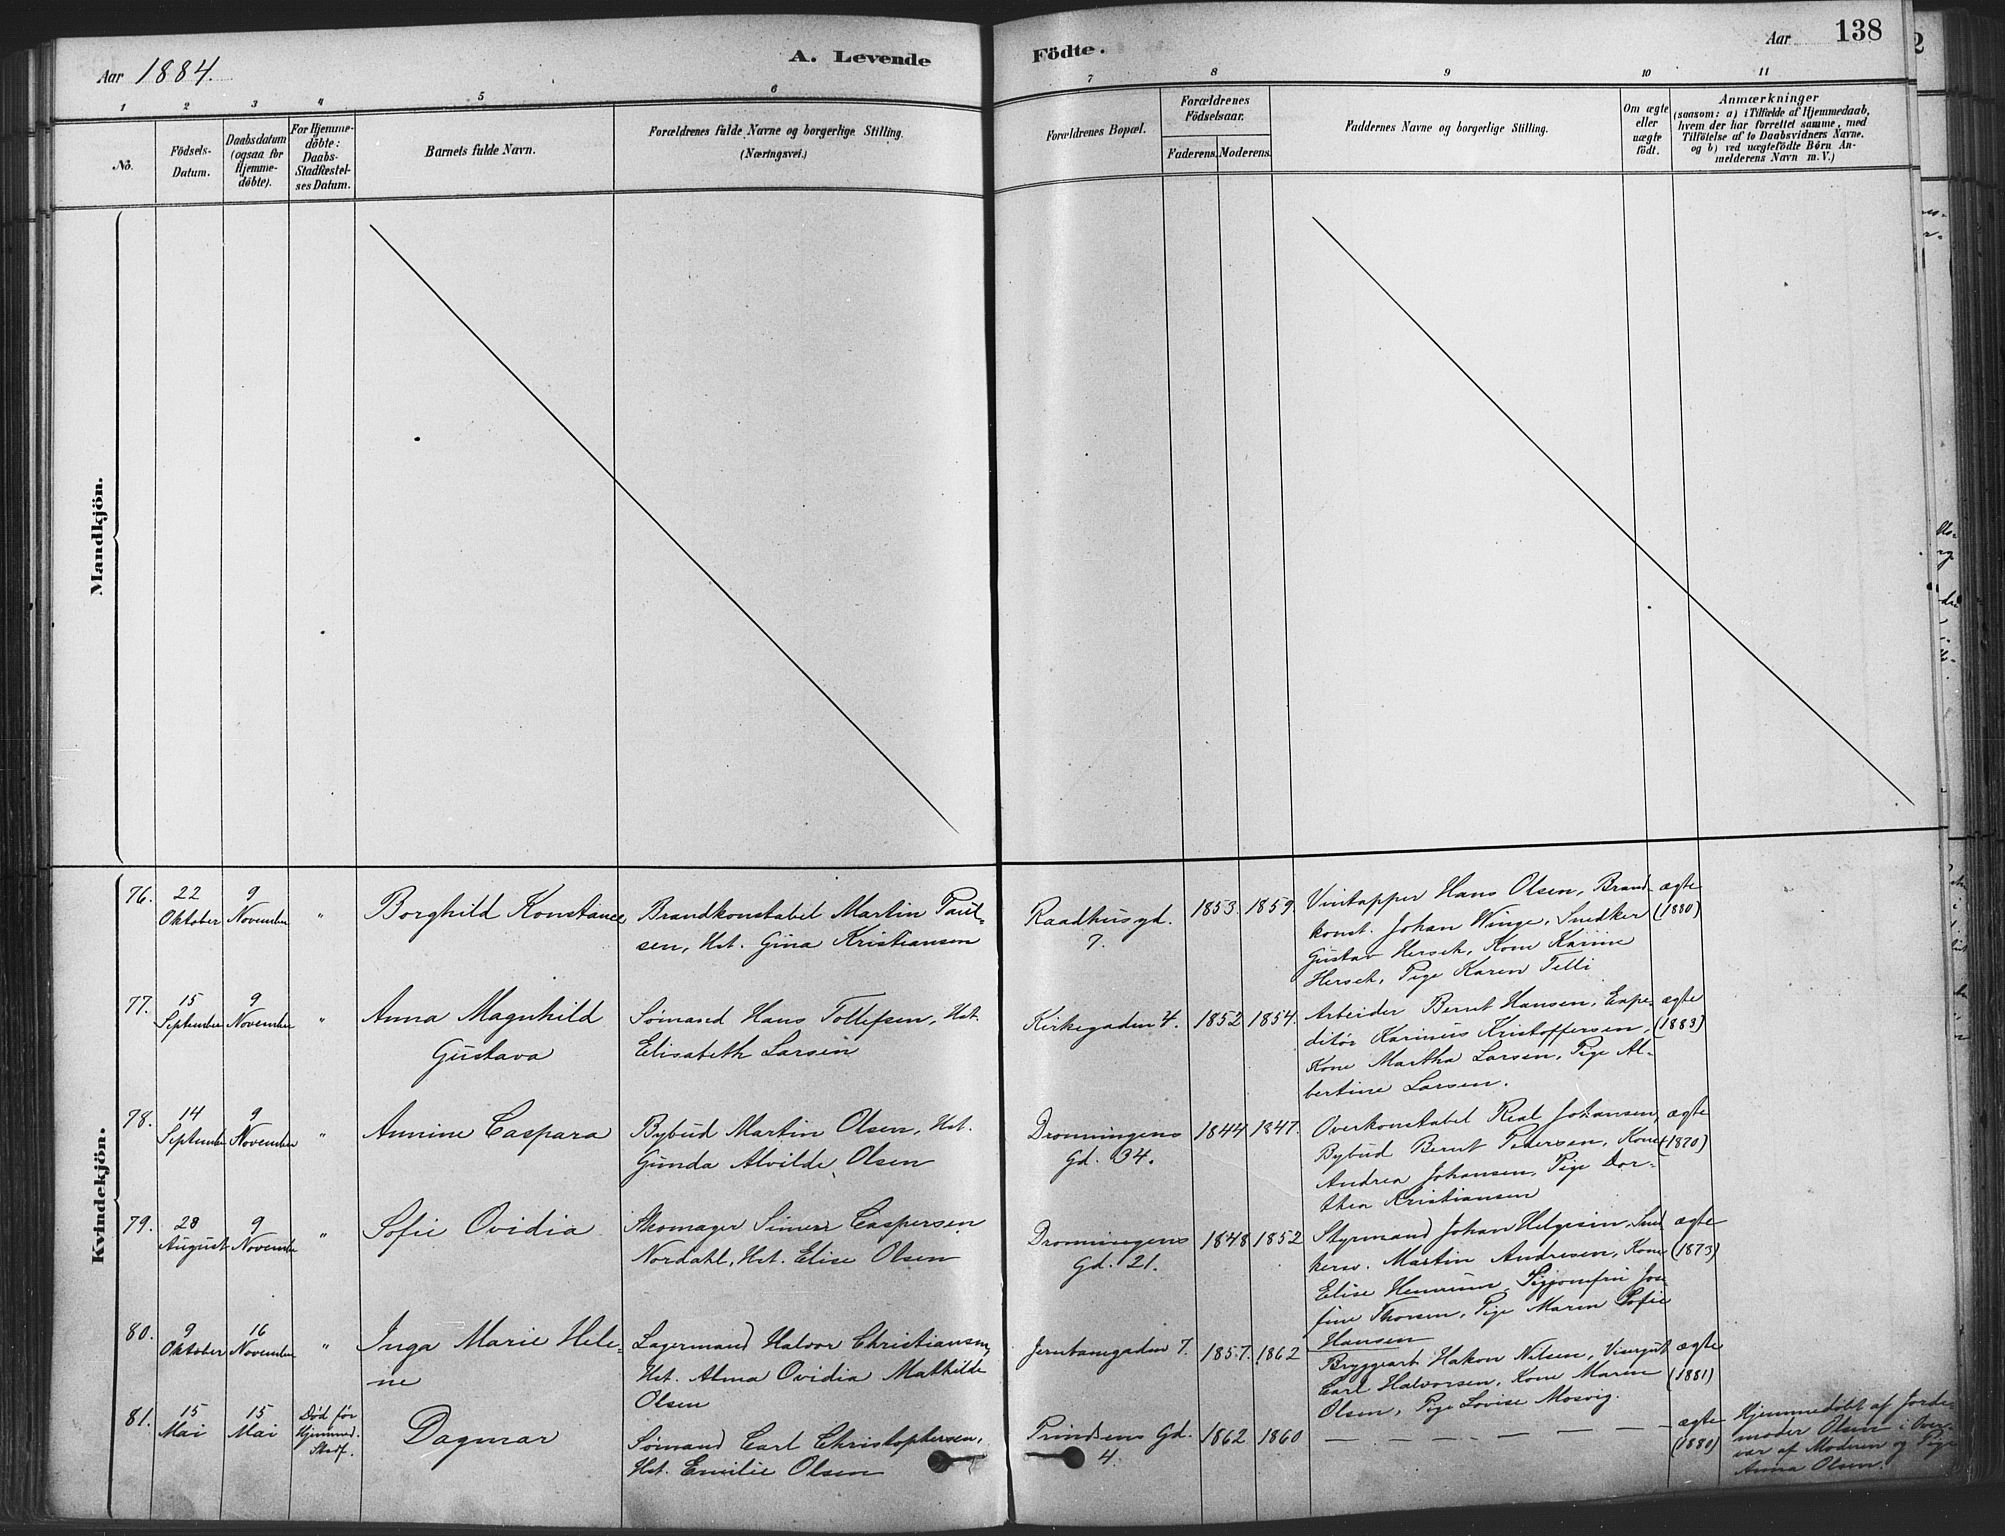 Aar 1884.
A. Levende
Födte.
Aar
138
1
2
3
4
5
6
7
8
9
10
11
No.
Födsels-
Datum.
Daabsdatum
(ogsaa for
Hjemme-
døbte).
For Hjemme-
døbte:
Daabs-
Stadfæstel-
ses Datum.
Barnets fulde Navn.
Forældrenes fulde Navne og borgerlige Stilling.
(Næringsvei.)
Forældrenes Bopæl.
Forældrenes
Födselsaar.
Faderens.
Moderens.
Faddernes Navne og borgerlige Stilling.
Om ægte
eller
uægte
født.
Anmærkninger
(saasom: a) i Tilfælde af Hjemmedaab,
hvem der har forrettet samme, med
Tilföielse af to Daabsvidners Navne.
og b) ved uægtefödte Börn An-
melderens Navn m. V.)
Mandkjön.
Kvindekjön.
76.
22
Oktober
9
November
"
Borghild Konstance
Brandkonstabel Martin Paul-
sen, Hst. Gina Kristiansen
Raadhusgd.
7.
1853.
1859.
Vintapper Hans Olsen, Brand-
konst. Johan Winge, Snedker
Gustav Hersch, Kone Karine
Hersch, Pige Karen Telli
ægte
(1880)
77.
15
September
9
November
"
Anna Magnhild
Gustava
Sømand Hans Tollefsen, Hst.
Elisabeth Larsen
Kirkegaden 4.
1852
1854.
Arbeider Bernt Hansen, Expe-
ditör Karinius Kristoffersen,
Kone Martha Larsen, Pige Al-
bertine Larsen.
ægte
(1883)
78.
14
September
9
November
"
Annine Caspara
Bybud Martin Olsen, Hst.
Gunda Alvilde Olsen
Dronningens
Gd. 34.
1844
1847.
Overkonstabel Real Johansen,
Bybud Bernt Pedersen, Kone
Andrea Johansen, Pige Dor-
thea Kristiansen
ægte
(1870)
79.
28
August
9
November
"
Sofie Ovidia
Skomager Simen Caspersen
Nordahl, Hst. Elise Olsen
Dronningens
Gd. 21.
1848
1852
Styrmand Johan Helgesin, Sned
kersv. Martin Andresen, Kone
Elise Henrum, Sypjomfru Jose-
fine Thorsen, Pige Maren Sofie
Hansen
ægte
(1873)
80.
9
Oktober
16
November
"
Inga Marie Hele-
ne
Lagermand Halvor Christiansen,
Hst. Alma Ovidia Mathilde
Olsen
Jernbanegaden 7.
1857.
1862
Bryggearb Hakon Nilsen, Visergut
Carl Halvorsen, Kone Maren
Olsen, Pige Lovise Mosvig.
ægte
(1881)
81.
15
Mai
15
Mai
Død før
Hjemmed.
Stadf.
Dagmar
Sømand Carl Christophersen,
Hst. Emilie Olsen
Prindsens Gd.
4.
1862
1860
— — — — — —
ægte
(1880)
Hjemmedøbt af Jorde-
moder Olsen i Over-
vær af Moderen og Pige
Anna Olsen.